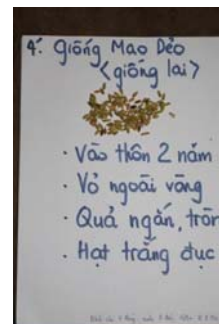 4. Giống Mao Dẻo
<giống lai>
· Vào thôn 2 năm
· Vỏ ngoài vàng
· Quả ngắn, tròn
· Hạt trắng đục